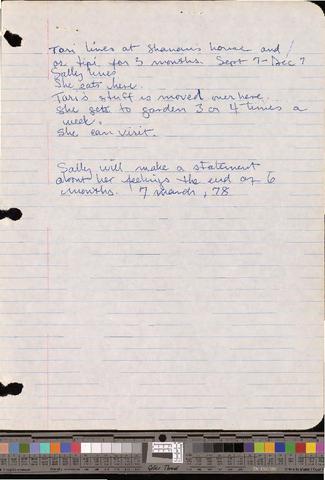 Tari lives at Shanan's house and/
or tipi for 3 months. Sept 7 - Dec 7
Sally lives
She eats here.
Tari's stuff is moved over here.
She gets to garden 3 or 4 times a
week.
She can visit.
Sally will make a statement
about her feelings the end of 6
months. 7 march, 78